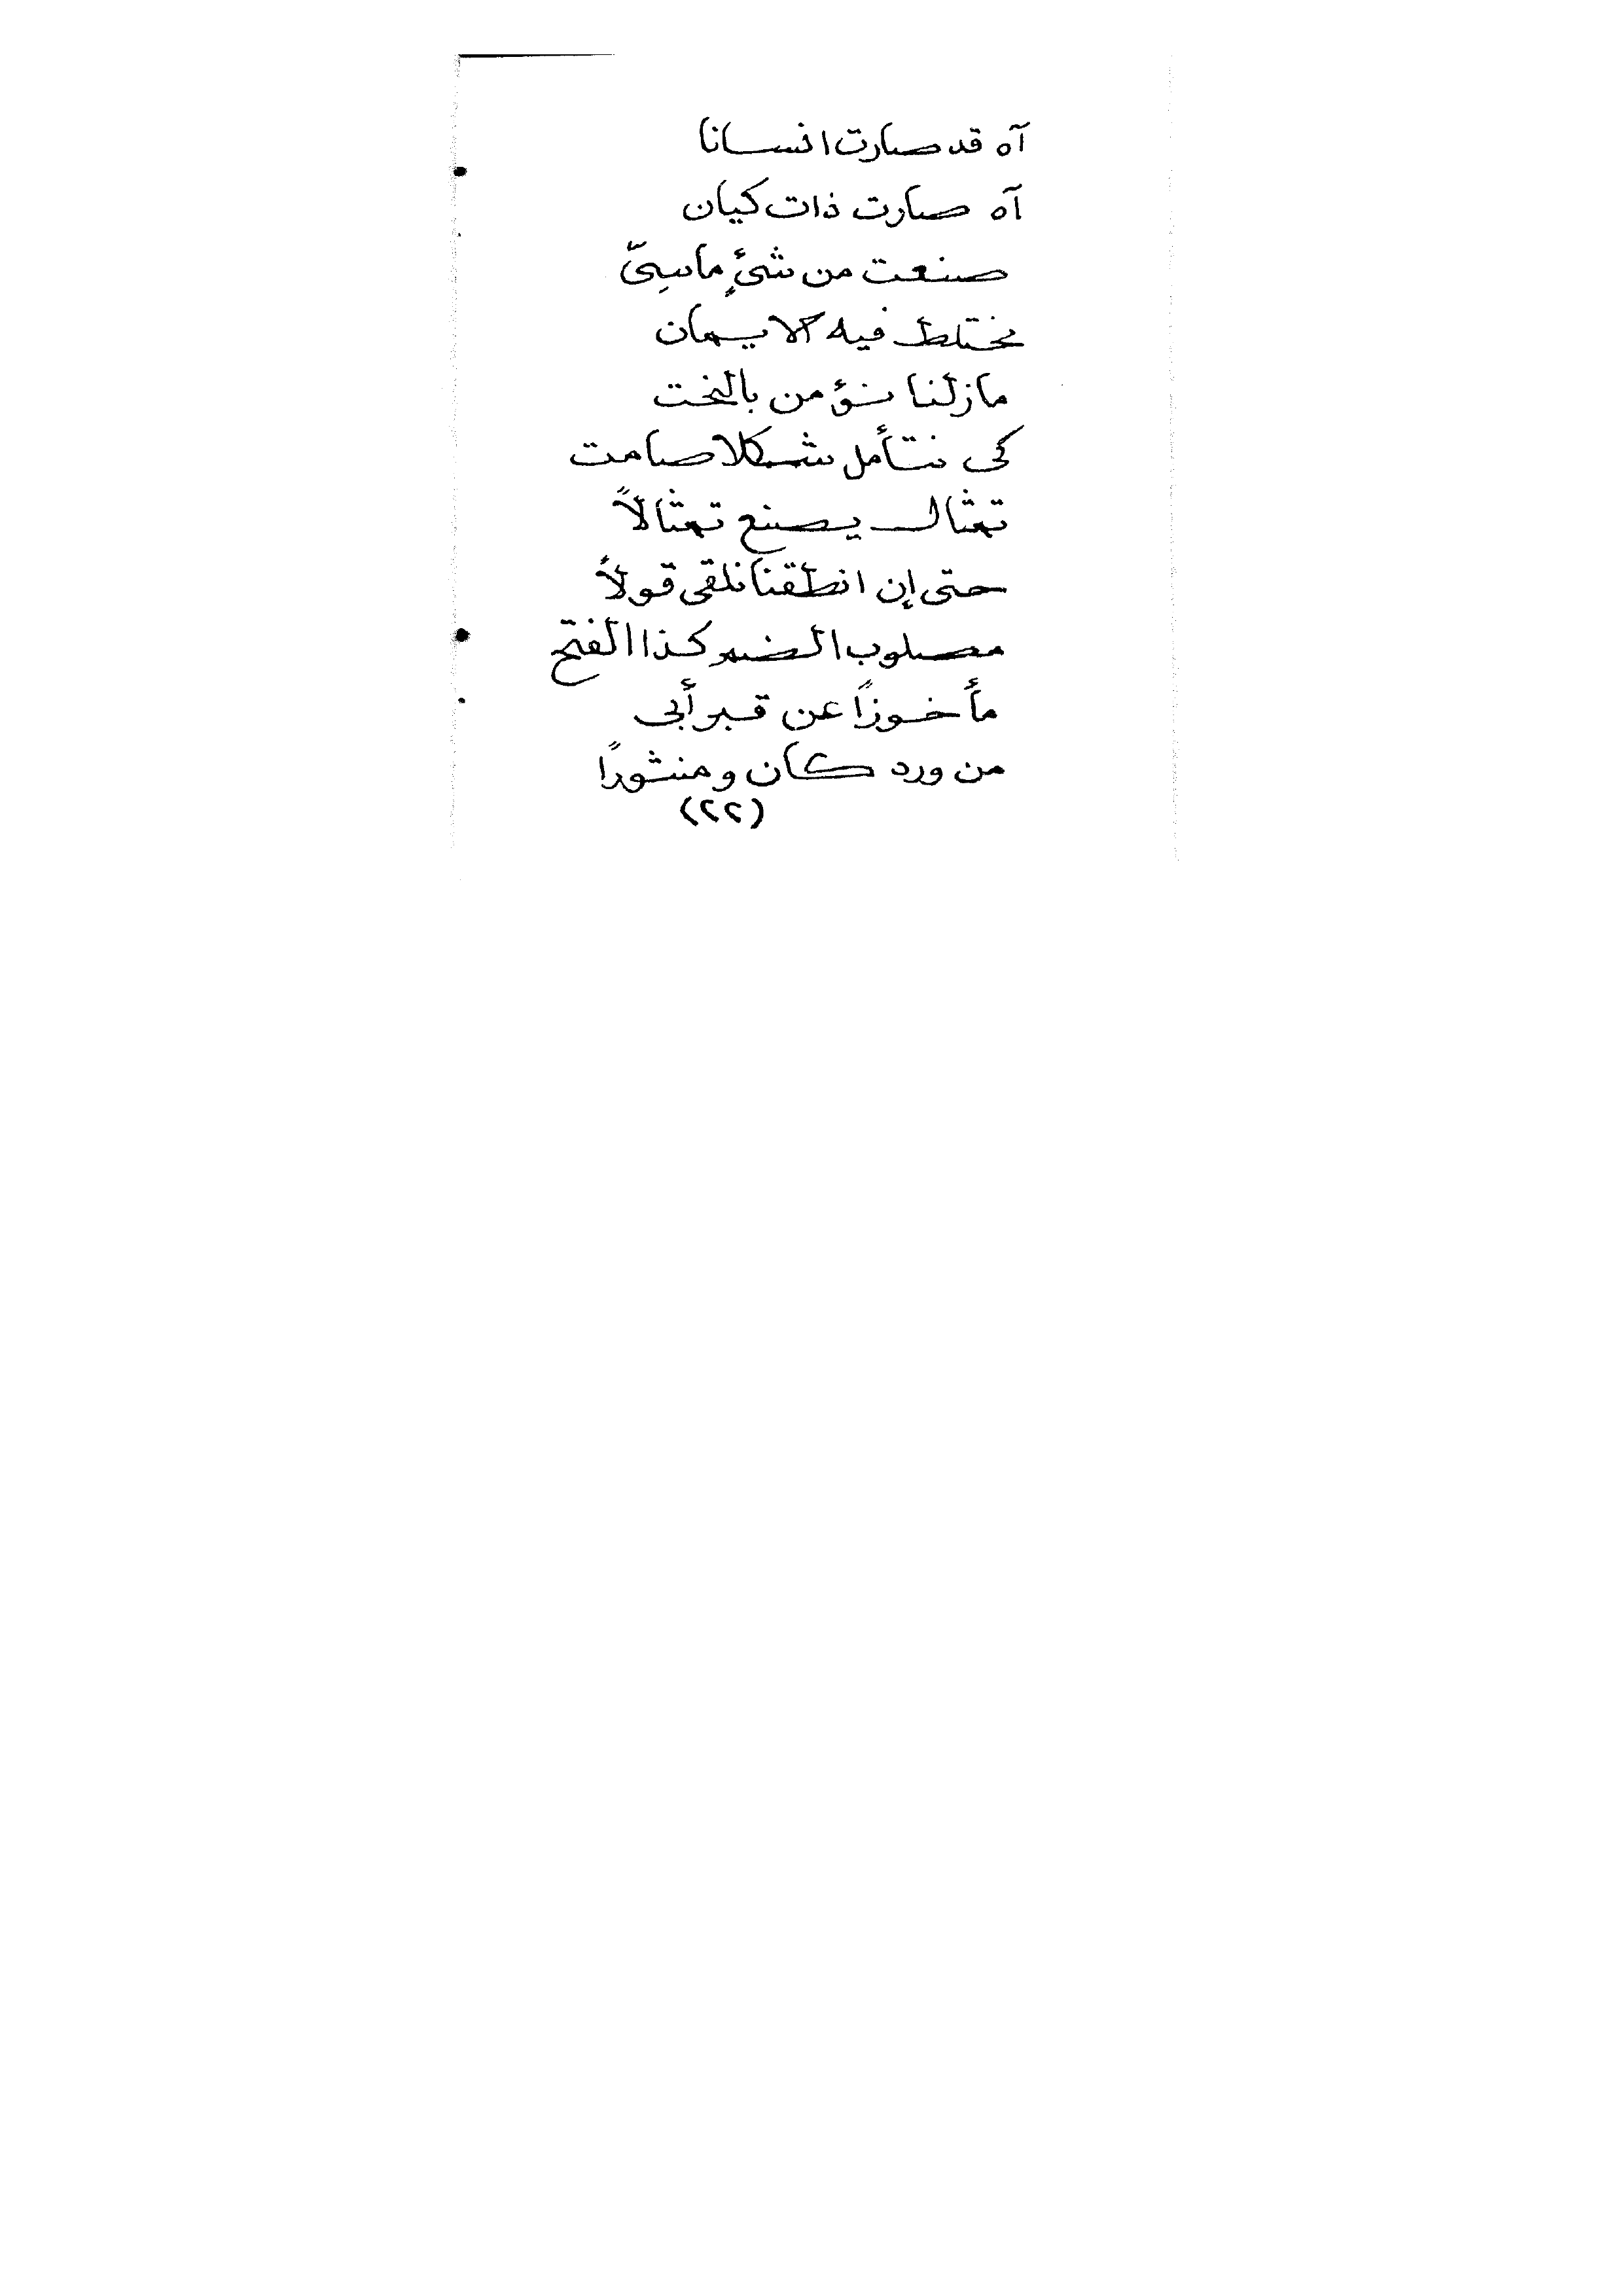 آه قد صارت انسانا
آه صارت ذات كيان
صنعت من شئٍ ماسِىّ
يختلط فيه الايمان
مازلنا نؤمن بالبخت
كى نتأمل شكلا صامت
تمثال يصنع تمثالاً
حتى إن انطقنا نلقى قولاً
مصلوب الضم كذا الفتح
مأخوزاً عن قبر أبى
من ورد كان ومنثوراً
(٢٢)